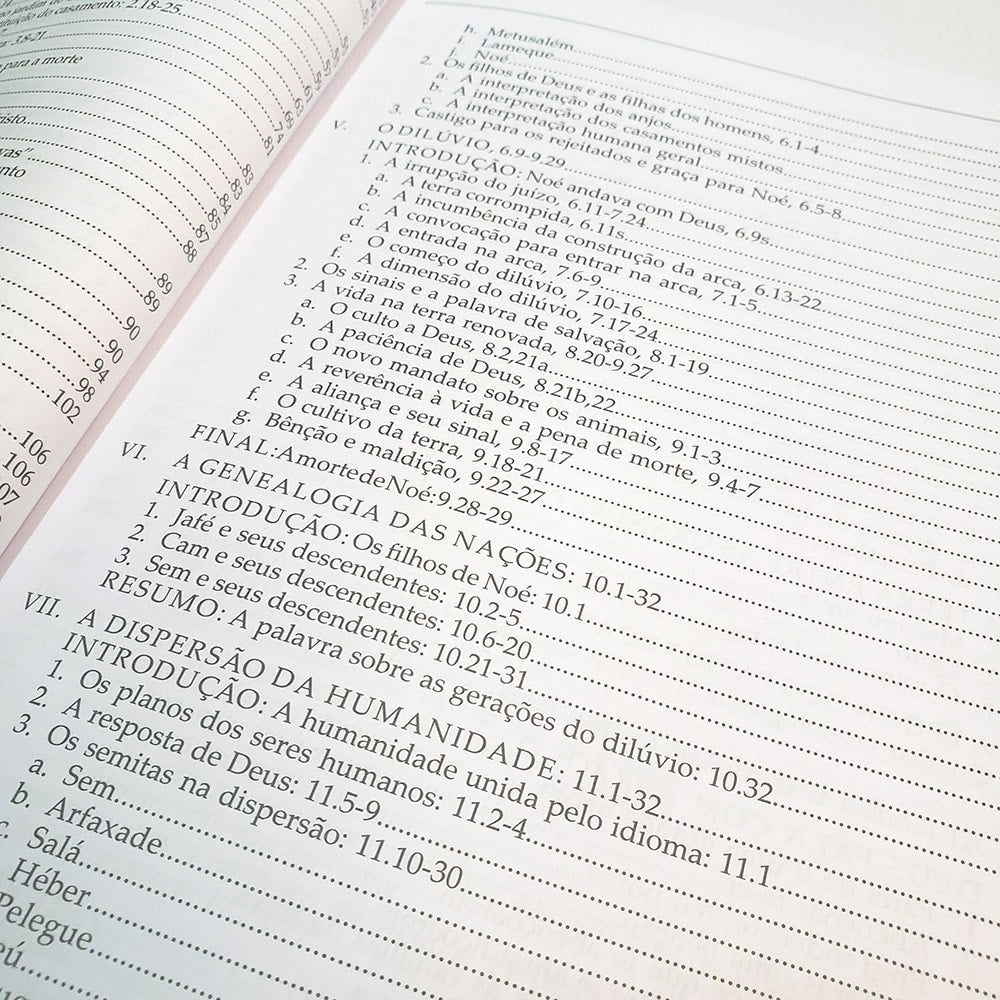 tituição do casamento: 2.18-25
3.8-21
para a morte
89
89
90
90
94
98
102
106
106
107
h. Metusalém
i. Lameque
f. Noé
2. Os filhos de Deus e as filhas dos homens, 6.1-4
a. A interpretação dos anjos
b. A interpretação dos casamentos mistos
c. A interpretação humana geral
3. Castigo para os rejeitados e graça para Noé, 6.5-8
V. O DILÚVIO, 6.9-9.29
INTRODUÇÃO: Noé andava com Deus, 6.9s
1. A irrupção do juízo, 6.11-7.24
a. A terra corrompida, 6.11s
b. A incumbência da construção da arca, 6.13-22
c. A convocação para entrar na arca, 7.1-5
d. A entrada na arca, 7.6-9
e. O começo do dilúvio, 7.10-16
f. A dimensão do dilúvio, 7.17-24
2. Os sinais e a palavra de salvação, 8.1-19
3. A vida na terra renovada, 8.20-9.27
a. O culto a Deus, 8.2,21a
b. A paciência de Deus, 8.21b,22
c. O novo mandato sobre os animais, 9.1-3
d. A reverência à vida e a pena de morte, 9.4-7
e. A aliança e seu sinal, 9.8-17
f. O cultivo da terra, 9.18-21
g. Bênção e maldição, 9.22-27
FINAL: A morte de Noé: 9.28-29
VI. A GENEALOGIA DAS NAÇÕES: 10.1-32
INTRODUÇÃO: Os filhos de Noé: 10.1
1. Jafé e seus descendentes: 10.2-5
2. Cam e seus descendentes: 10.6-20
3. Sem e seus descendentes: 10.21-31
RESUMO: A palavra sobre as gerações do dilúvio: 10.32
VII. A DISPERSÃO DA HUMANIDADE: 11.1-32
INTRODUÇÃO: A humanidade unida pelo idioma: 11.1
1. Os planos dos seres humanos: 11.2-4
2. A resposta de Deus: 11.5-9
3. Os semitas na dispersão: 11.10-30
a. Sem
b. Arfaxade
c. Salá
Héber
Pelegue